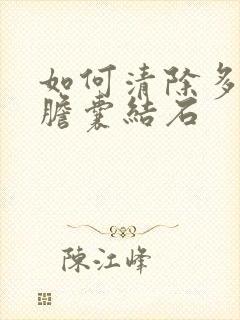 如何清除多
膽囊結石
陳江峰